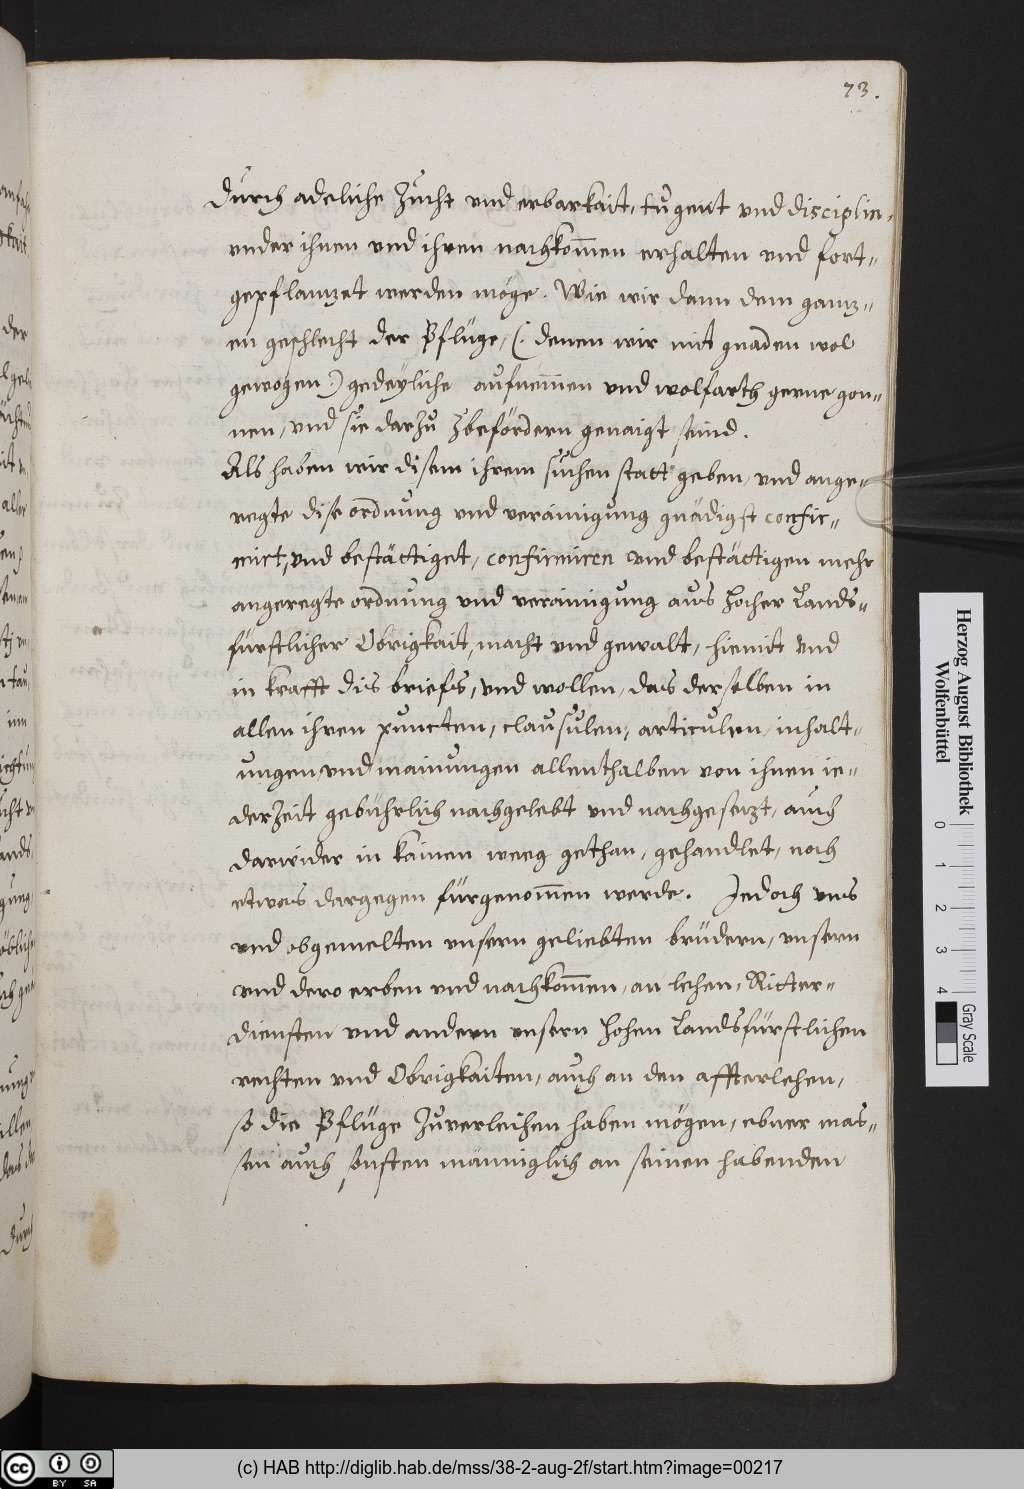 73.
durch adeliche Zucht vnd erbarkait, tugent vnd disciplin,
vnder ihnen vnd ihren nachkom̄en erhalten vnd fort-
gepflantzet werden möge. Wie wir dann dem gantz-
en geschlecht der Pflüge, (: denen wir mit gnaden wol
gewogen :) gedeyliche aufnem̄en vnd wolfarth gerne gon-
nen, vnd sie darzu Zbefördern genaigt seind.
Als haben wir disem ihrem suchen statt geben, vnd ange-
regte dise ordnung vnd verainigung gnädigst confir-
mirt, vnd bestättiget, confirmiren vnd bestättigen mehr
angeregte ordnung vnd verainigung aus hocher Lands-
fürstlicher Obrigkait, macht vnd gewalt, hiemit vnd
in krafft dis briefs, vnd wollen, das derselben in
allen ihren puncten, clausulen, articulen, inhalt-
ungen, vnd mainungen allenthalben von ihnen ie-
derZeit gebührlich nachgelebt vnd nachgesetzt, auch
darwider in kainen weeg gethan, gehandlet, noch
etwas dargegen fürgenom̄en werde. Jedoch vns
vnd obgemelten vnsern geliebten brüdern, vnsern
vnd dero erben vnd nachkom̄en, an lehen, Ritter-
diensten vnd andern vnsern hohen Landsfürstlichen
rechten vnd Obrigkaiten, auch an den affterlehen,
so die Pflüge Zuverleihen haben mögen, ebner mas-
sen auch sonsten männiglich an seinen habenden
Herzog August Bibliothek
Wolfenbüttel
0 1 2 3 4
Gray Scale
cc BY SA
(c) HAB http://diglib.hab.de/mss/38-2-aug-2f/start.htm?image=00217